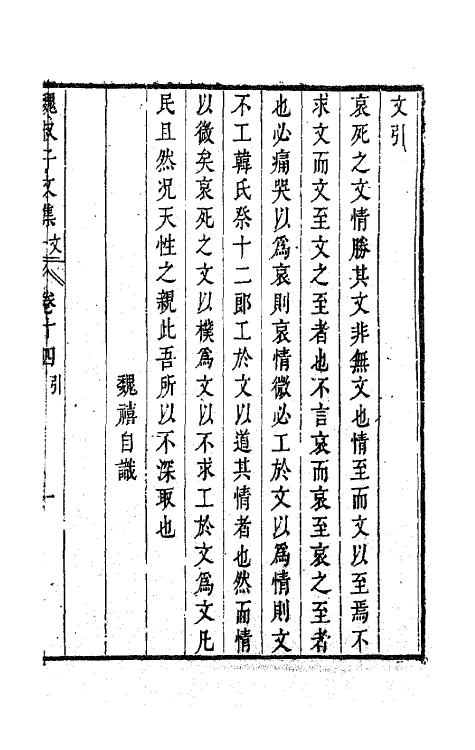 文引
哀死之文情勝其文非無文也情至而文以至焉不
求文而文至文之至者也不言哀而哀至哀之至者
也必痛哭以爲哀則哀情微必工於文以爲情則文
不工韓氏祭十二郎工於文以道其情者也然而情
以微矣哀死之文以樸爲文以不求工於文爲文凡
民且然况天性之親此吾所以不深取也
魏禧自識
魏叔子文集 文 卷十四 引 一